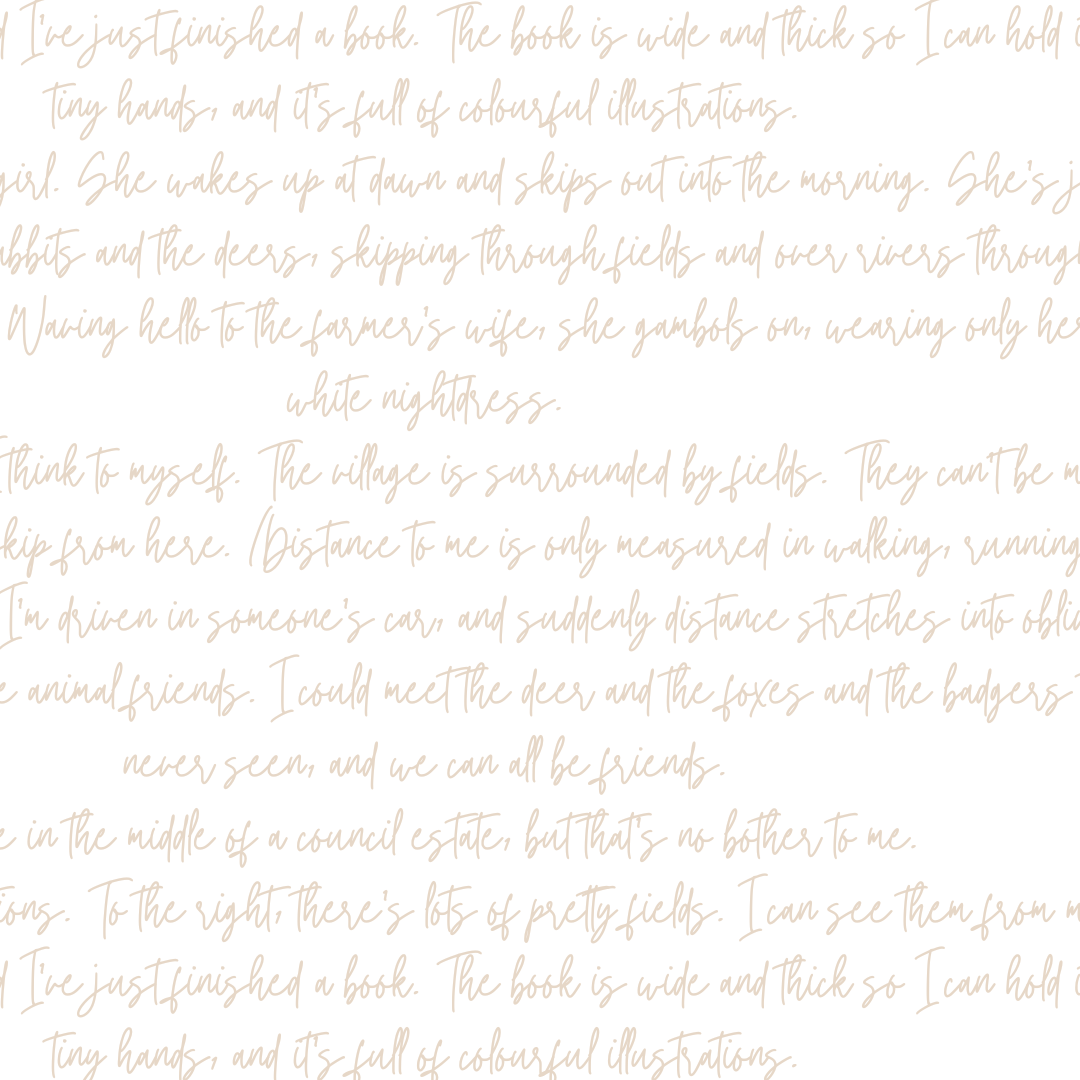 I've just finished a book. The book is wide and thick so I can hold i
tiny hands, and it's full of colourful illustrations.
girl. She wakes up at dawn and skips out into the morning. She's j
abbits and the deers, skipping through fields and over rivers throug
Waving hello to the farmer's wife, she gambols on, wearing only her
white nightdress.
think to myself. The village is surrounded by fields. They can't be m
kip from here. (Distance to me is only measured in walking, running
I'm driven in someone's car, and suddenly distance stretches into obli
e animal friends. I could meet the deer and the foxes and the badgers
never seen, and we can all be friends.
e in the middle of a council estate, but that's no bother to me.
ions. To the right, there's lots of pretty fields. I can see them from m
I've just finished a book. The book is wide and thick so I can hold i
tiny hands, and it's full of colourful illustrations.